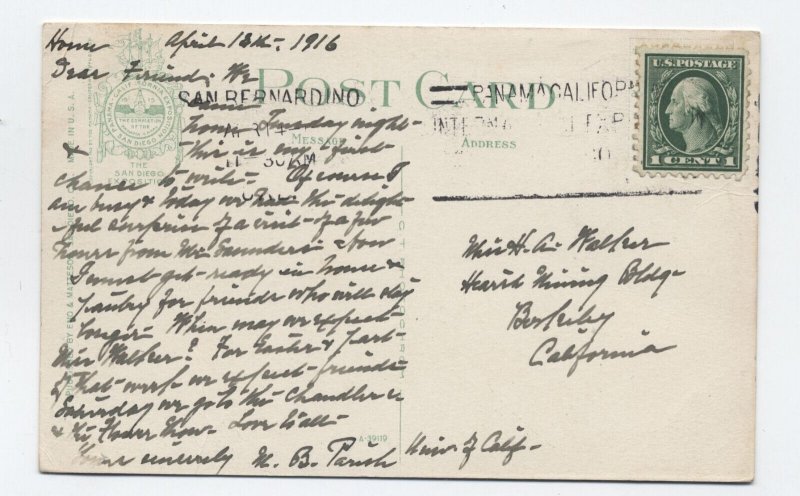 Home April 13th, 1916
Dear Friend: We
POST CARD
SAN BERNARDINO
PANAMA CALIFOR
home Tuesday night
MESSAGE
ADDRESS
& this is my first
chance to write. Of course I
am busy & today we have the delight
ful surprise of a visit of a few
hours from Mr Saunders. Now
I must get ready in home &
pantry for friends who will stay
longer. When may we expect
Miss Walker? For Easter & part
of that week we expect friends
Saturday we go to the Chandler
& the Flower Show. Love to all
Yours sincerely M. B. Parish
U.S. POSTAGE
1 CENT 1
THE
SAN DIEGO
EXPOSITION
MADE IN U.S.A.
A-39119
Miss H. A. Walker
Hearst Mining Bldg.
Berkeley
California
Univ. of Calif.